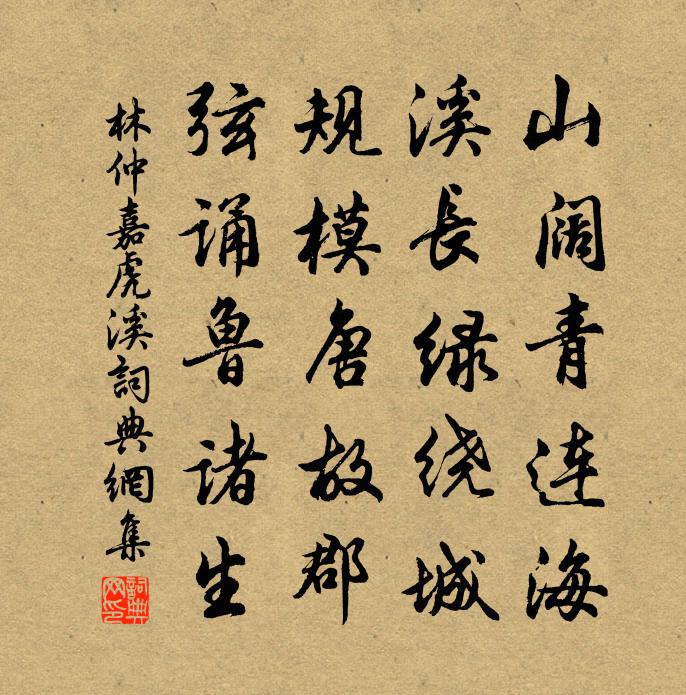 山阔青连海
溪長绿绕城
规模唐故郡
弦诵鲁诸生
林仲嘉虎溪詞典網集
詞典
网印